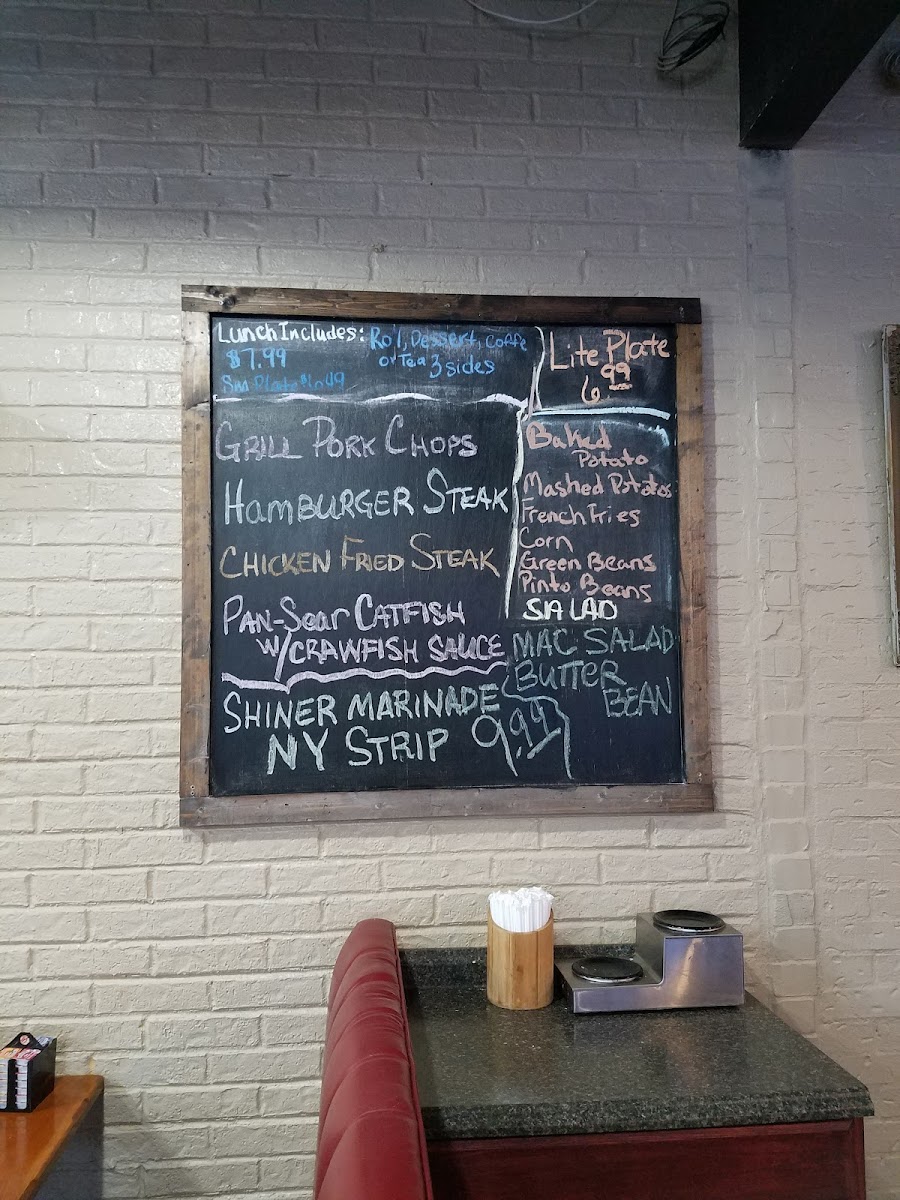 Lunch Includes: Ro'l, Dessert, coffe
$7.99 or Tea 3 sides
Sm Plate $6.49
Lite Plate
6 99
GRILL PORK CHOPS
HAMBURGER STEAK
CHICKEN FRIED STEAK
PAN-Sear CATFISH
W/CRAWFISH SAUCE
SHINER MARINADE
NY STRIP 9.99
Baked
Potato
Mashed Potatos
French Fries
Corn
Green Beans
Pinto Beans
SALAD
MAC SALAD
BUTTER
BEAN